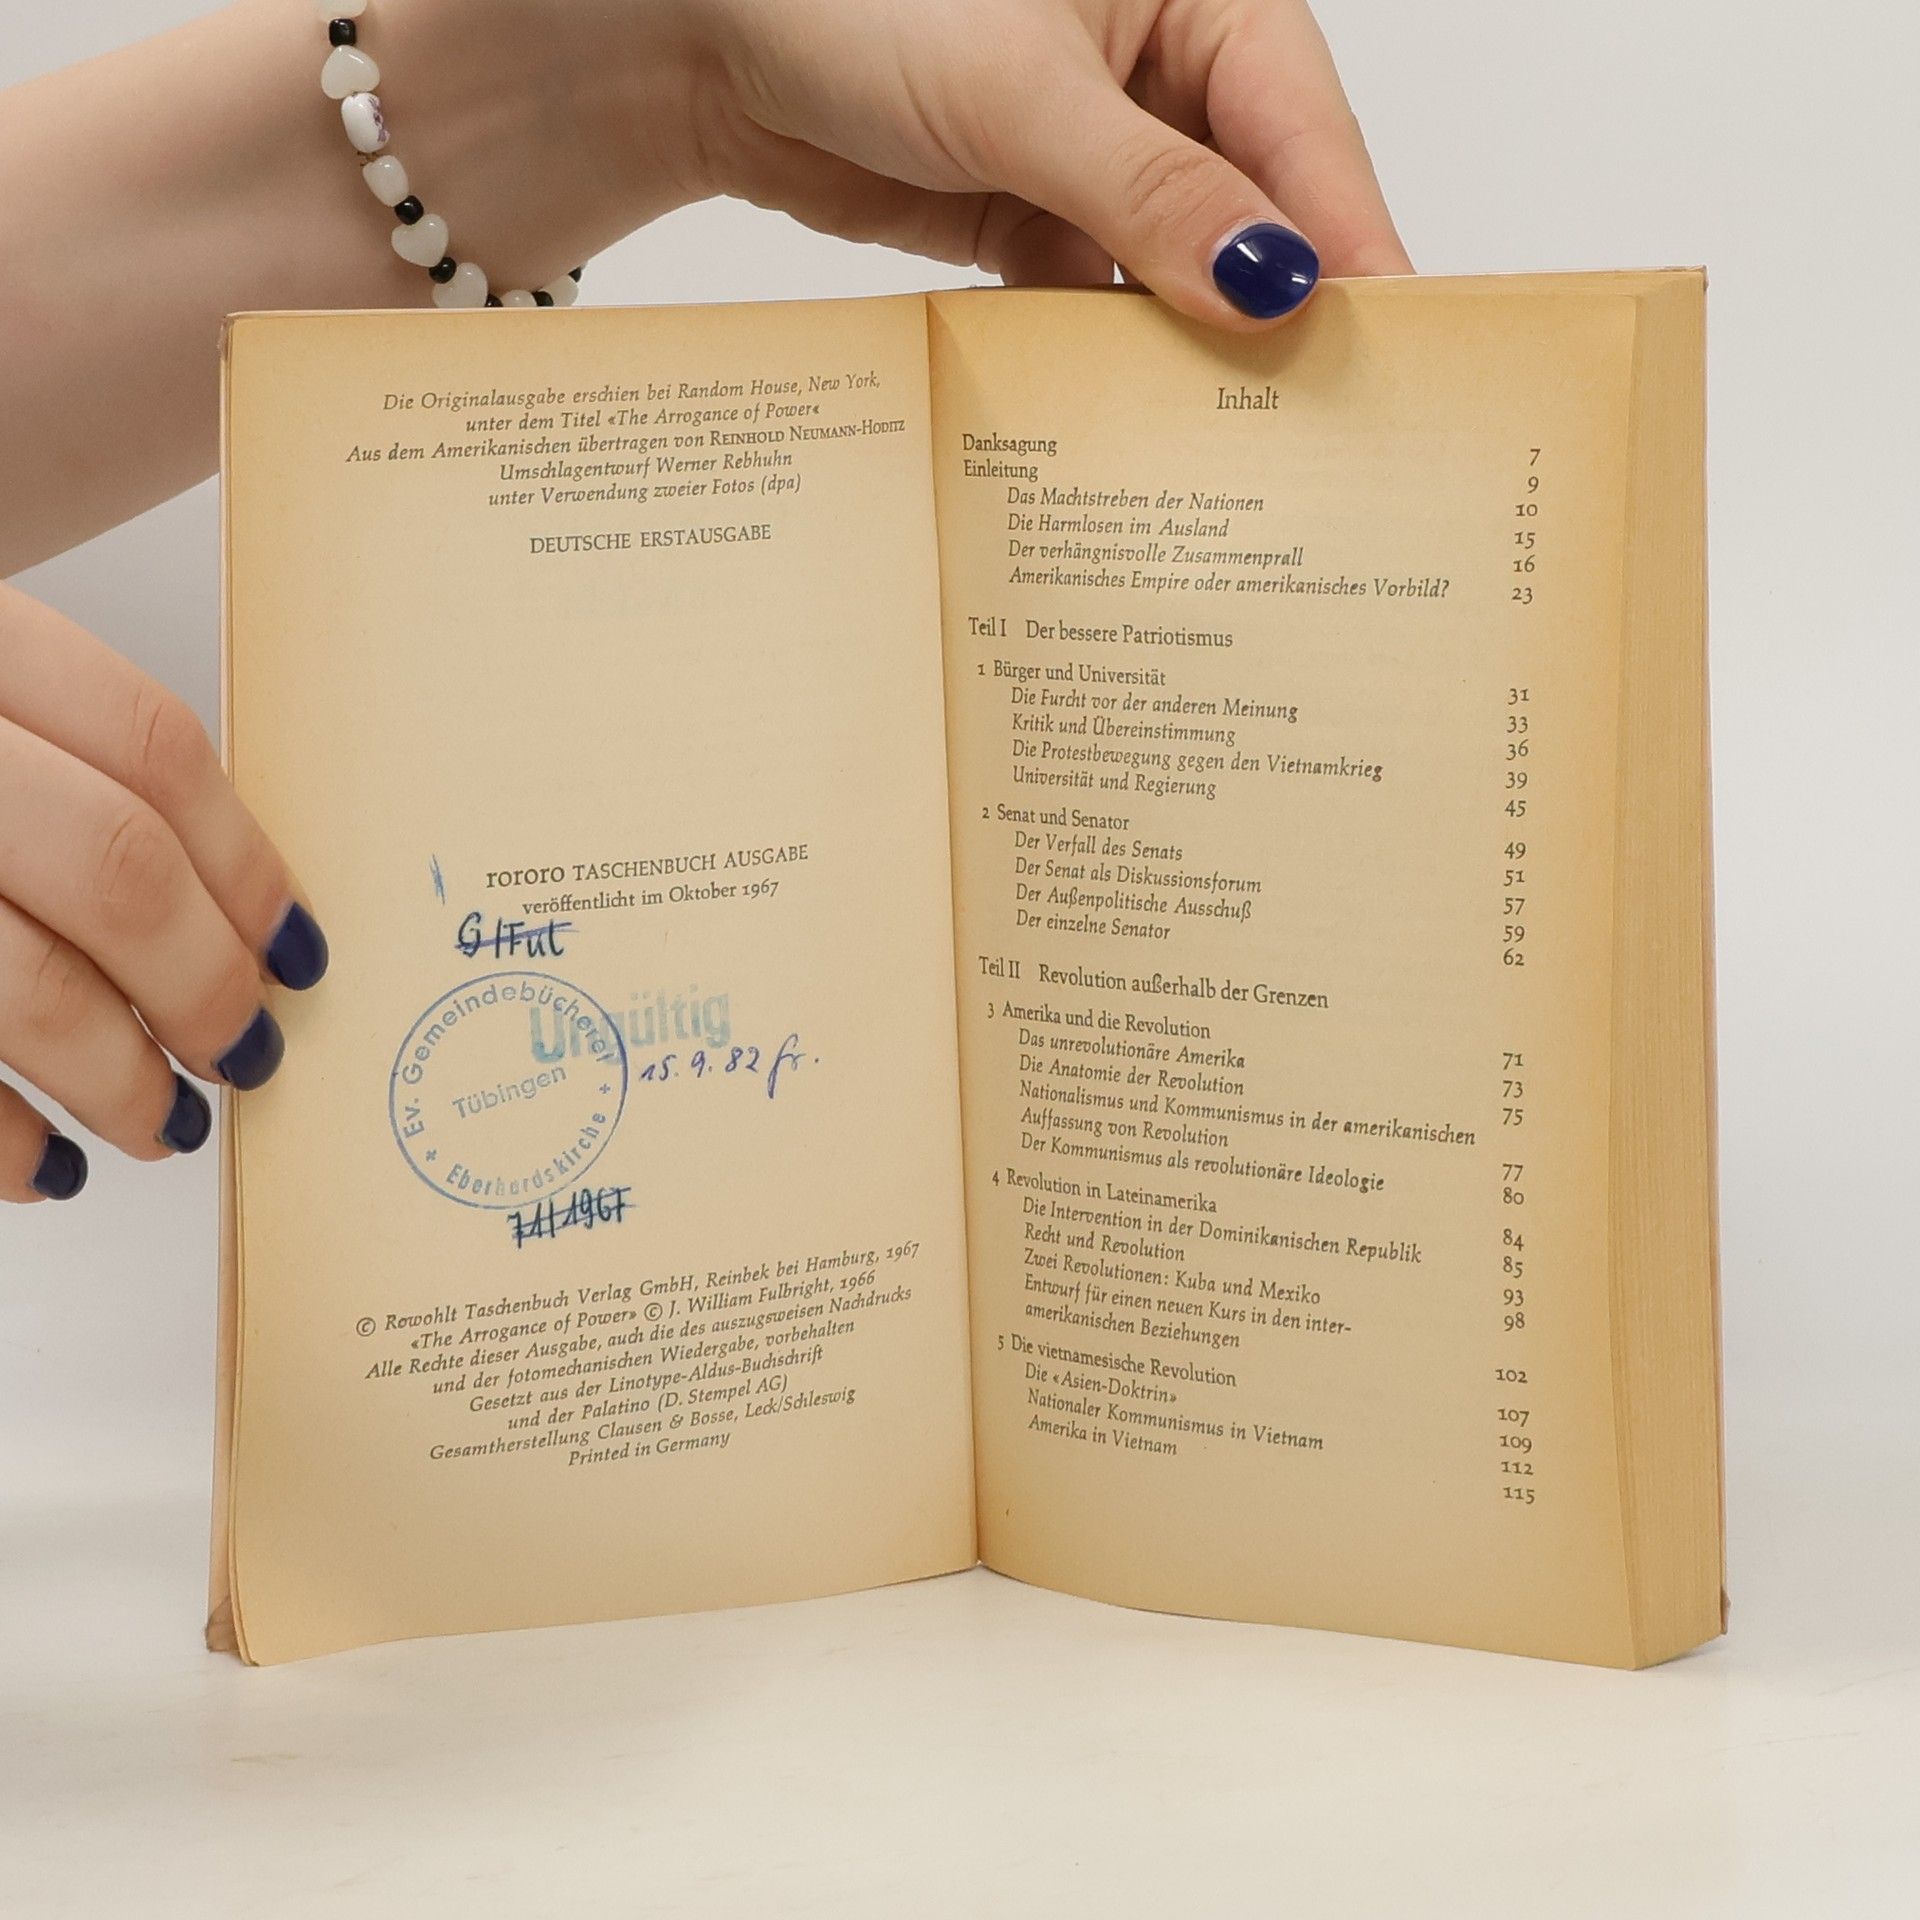 Die Originalausgabe erschien bei Random House, New York,
unter dem Titel «The Arrogance of Power«
Aus dem Amerikanischen übertragen von REINHOLD NEUMANN-HODITZ
Umschlagentwurf Werner Rebhuhn
unter Verwendung zweier Fotos (dpa)
DEUTSCHE ERSTAUSGABE
rororo TASCHENBUCH AUSGABE
veröffentlicht im Oktober 1967
G/Ful
Ungültig
15. 9. 82 fr.
Ev. Gemeindebücherei
Tübingen
+ Eberhardskirche +
71/1967
© Rowohlt Taschenbuch Verlag GmbH, Reinbek bei Hamburg, 1967
«The Arrogance of Power» © J. William Fulbright, 1966
Alle Rechte dieser Ausgabe, auch die des auszugsweisen Nachdrucks
und der fotomechanischen Wiedergabe, vorbehalten
Gesetzt aus der Linotype-Aldus-Buchschrift
und der Palatino (D. Stempel AG)
Gesamtherstellung Clausen & Bosse, Leck/Schleswig
Printed in Germany
Inhalt
Danksagung 7
Einleitung 9
Das Machtstreben der Nationen 10
Die Harmlosen im Ausland 15
Der verhängnisvolle Zusammenprall 16
Amerikanisches Empire oder amerikanisches Vorbild? 23
Teil I Der bessere Patriotismus
1 Bürger und Universität 31
Die Furcht vor der anderen Meinung 33
Kritik und Übereinstimmung 36
Die Protestbewegung gegen den Vietnamkrieg 39
Universität und Regierung 45
2 Senat und Senator 49
Der Verfall des Senats 51
Der Senat als Diskussionsforum 57
Der Außenpolitische Ausschuß 59
Der einzelne Senator 62
Teil II Revolution außerhalb der Grenzen
3 Amerika und die Revolution 71
Das unrevolutionäre Amerika 73
Die Anatomie der Revolution 75
Nationalismus und Kommunismus in der amerikanischen
Auffassung von Revolution 77
Der Kommunismus als revolutionäre Ideologie 80
4 Revolution in Lateinamerika 84
Die Intervention in der Dominikanischen Republik 85
Recht und Revolution 93
Zwei Revolutionen: Kuba und Mexiko 98
Entwurf für einen neuen Kurs in den inter-
amerikanischen Beziehungen 102
5 Die vietnamesische Revolution 107
Die «Asien-Doktrin» 109
Nationaler Kommunismus in Vietnam 112
Amerika in Vietnam 115